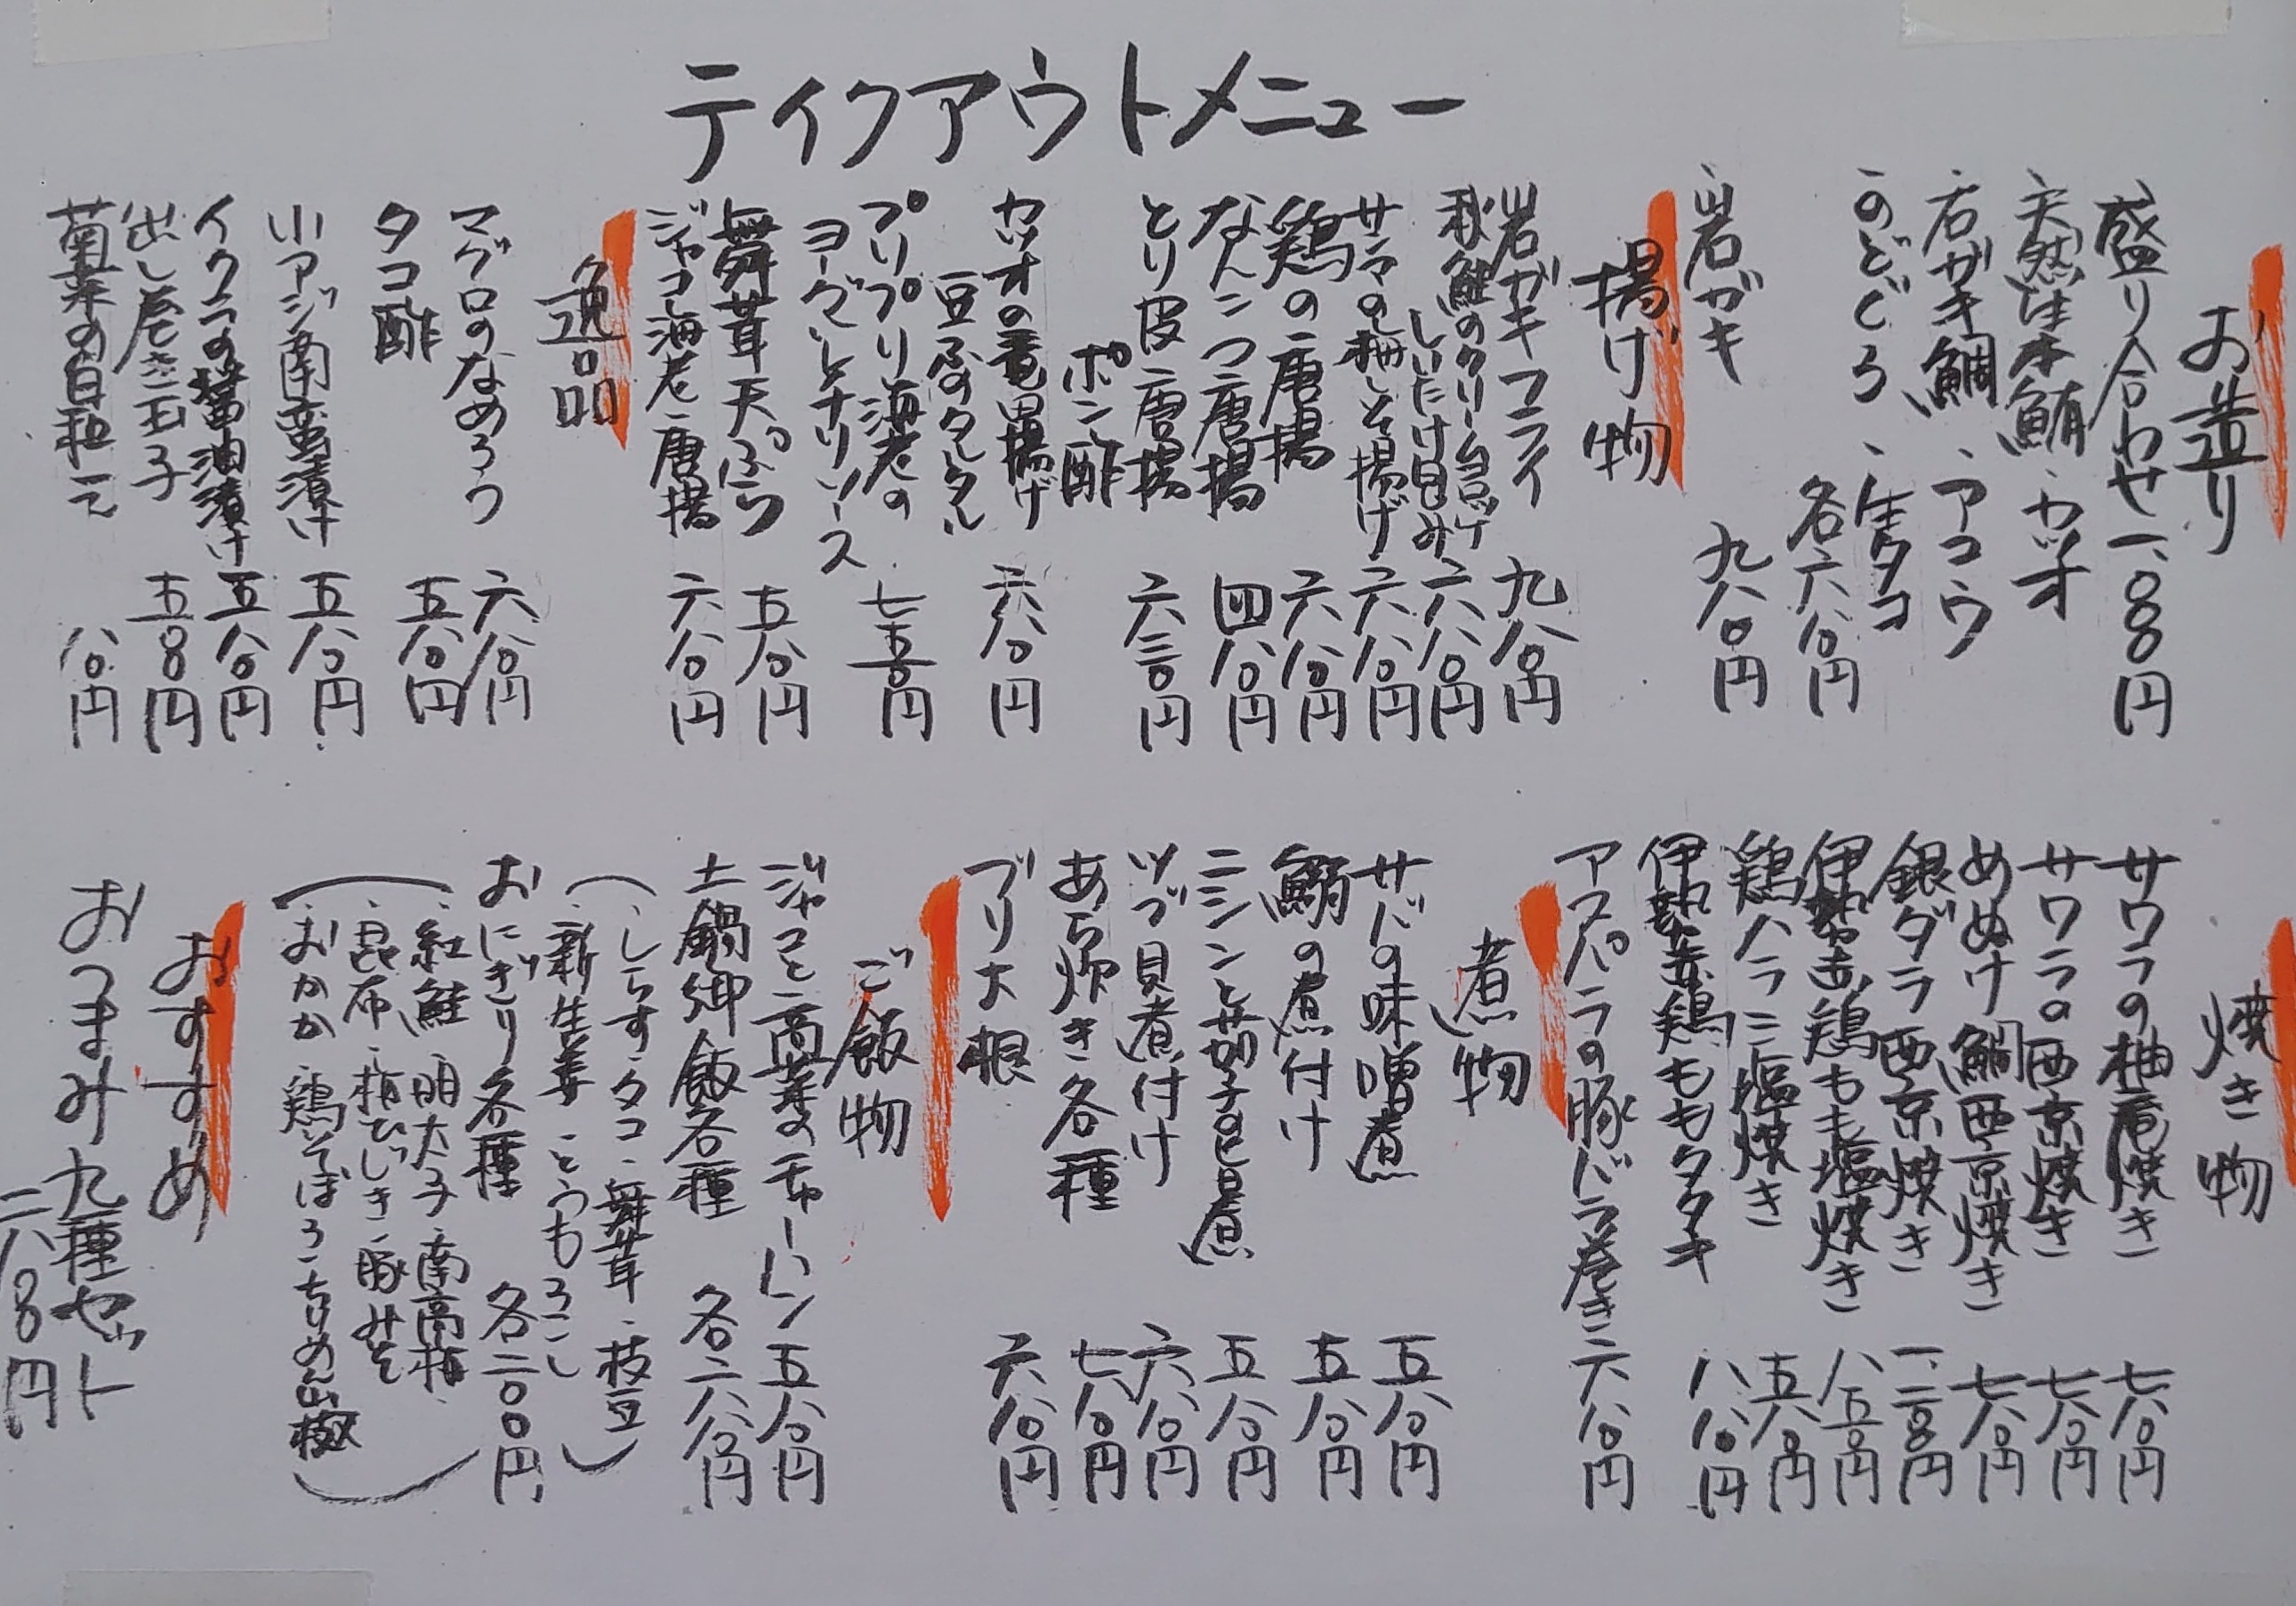 ティクアウトメニュー
お造り
盛り合わせ 一、〇〇〇円
・天然生本鮪 ・カツオ
・石ガキ鯛 ・アコウ
・のどぐろ ・生タコ
各六八〇円
・岩ガキ 九八〇円
揚げ物
岩ガキフライ 九八〇円
秋鮭のクリームコロッケ 六八〇円
しいたけ目み
サンマの梅しそ揚げ 六八〇円
鶏の唐揚 六八〇円
なんこつ唐揚 四八〇円
とり皮唐揚 六三〇円
ポン酢
カツオの竜田揚げ 六八〇円
豆ふのタルタル
プリプリ海老の 七五〇円
ヨーグルトチリソース
舞茸天ぷら 五八〇円
ジャコ海老唐揚 六八〇円
逸品
マグロのなめろう 六八〇円
タコ酢 五八〇円
小アジ南蛮漬け 五八〇円
イクラの醤油漬け 五八〇円
出し巻き玉子 五〇〇円
菊菜の白和え 八〇円
焼き物
サワラの柚庵焼き 七八〇円
サワラの西京焼き 七八〇円
めぬけ鯛西京焼き 七八〇円
銀ダラ西京焼き 一、二〇〇円
伊勢赤鶏もも塩焼き 八五〇円
鶏ハラミ塩焼き 五八〇円
伊勢赤鶏ももタタキ 八八〇円
アスパラの豚バラ巻き 六八〇円
煮物
サバの味噌煮 五八〇円
鰯の煮付け 五八〇円
ニシンと茄子の旨煮 五八〇円
ツブ貝煮付け 六八〇円
あら炊き各種 七八〇円
ブリ大根 六八〇円
ご飯物
ジャコと高菜のチャーハン 五八〇円
土鍋御飯各種 各二八〇〇円
（・しらす・タコ・舞茸・枝豆
・新生姜 とうもろこし）
おにぎり各種 各二〇〇円
（・紅鮭 明太子・南高梅・
・昆布・梅ひじき・豚みそ
・おかか・鶏そぼろ・ちりめん山椒）
おすすめ
おつまみ九種セット
二八〇〇円